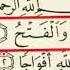 اللَّهِ الرَّحْمَ
وَالْفَتْحُ
اللَّهِ أَفْوَاجًا